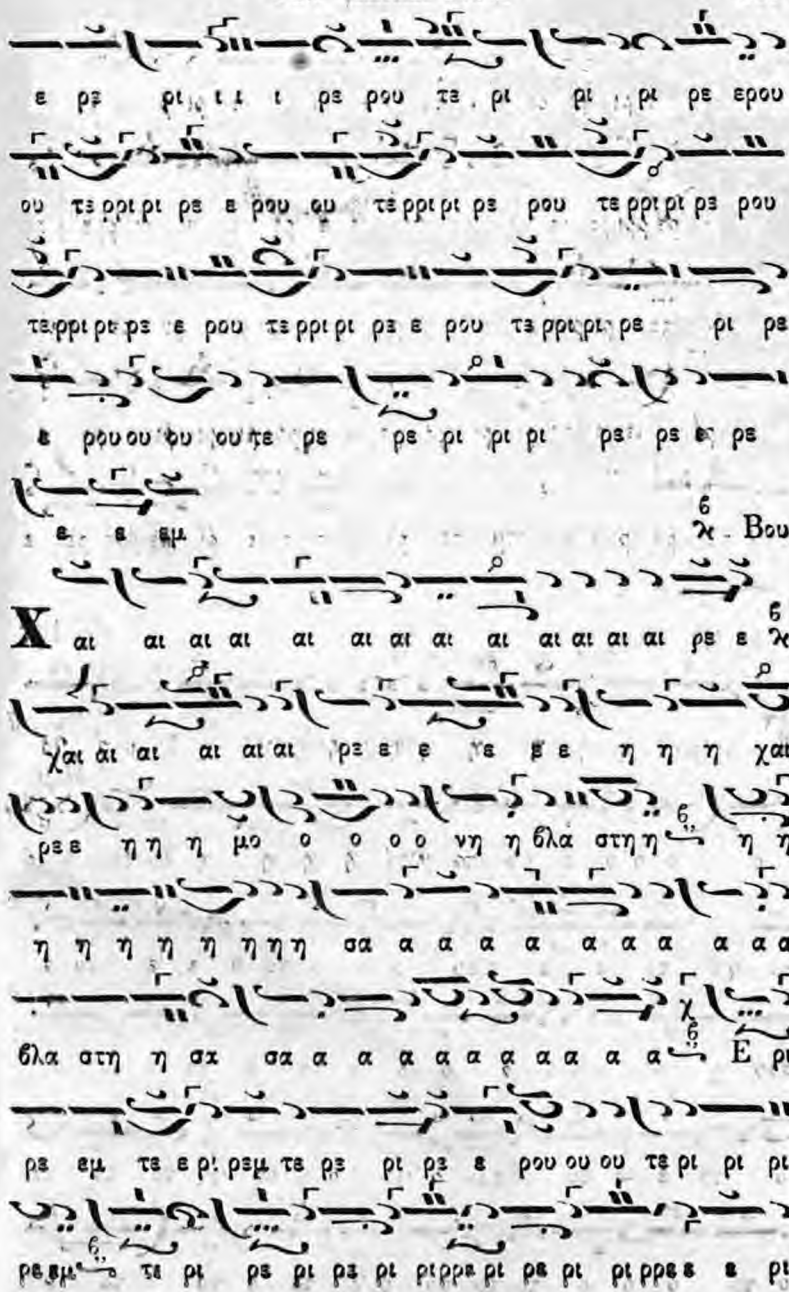 ε ρε ρι ι ι ι ρε ρου τε ρι ρι ρι ρε ερου
ου τε ρρι ρι ρε ε ρου ου τε ρρι ρι ρε ρου τε ρρι ρι ρε ρου
τε ρρι ρι ρε ε ρου τε ρρι ρι ρε ε ρου τε ρρι ρι ρε ρι ρε
ε ρου ου ου ου τε ρε ρε ρι ρι ρι ρε ρε ε ρε
ε ε εμ Βου
Χ αι αι αι αι αι αι αι αι αι αι αι αι αι ρε ε
χαι αι αι αι αι αι ρε ε ε ε ε ε η η η χαι
ρε ε η η η μο ο ο ο ο νη η βλα στη η η η
η η η η η η η η σα α α α α α α α α α α
βλα στη η σα σα α α α α α α α α α α Ε ρι
ρε εμ τε ε ρι ρεμ τε ρε ρι ρε ε ρου ου ου τε ρι ρι ρι
ρε εμ τε ρι ρε ρι ρε ρι ρι ρρε ρι ρε ρι ρι ρρε ε ε ρι